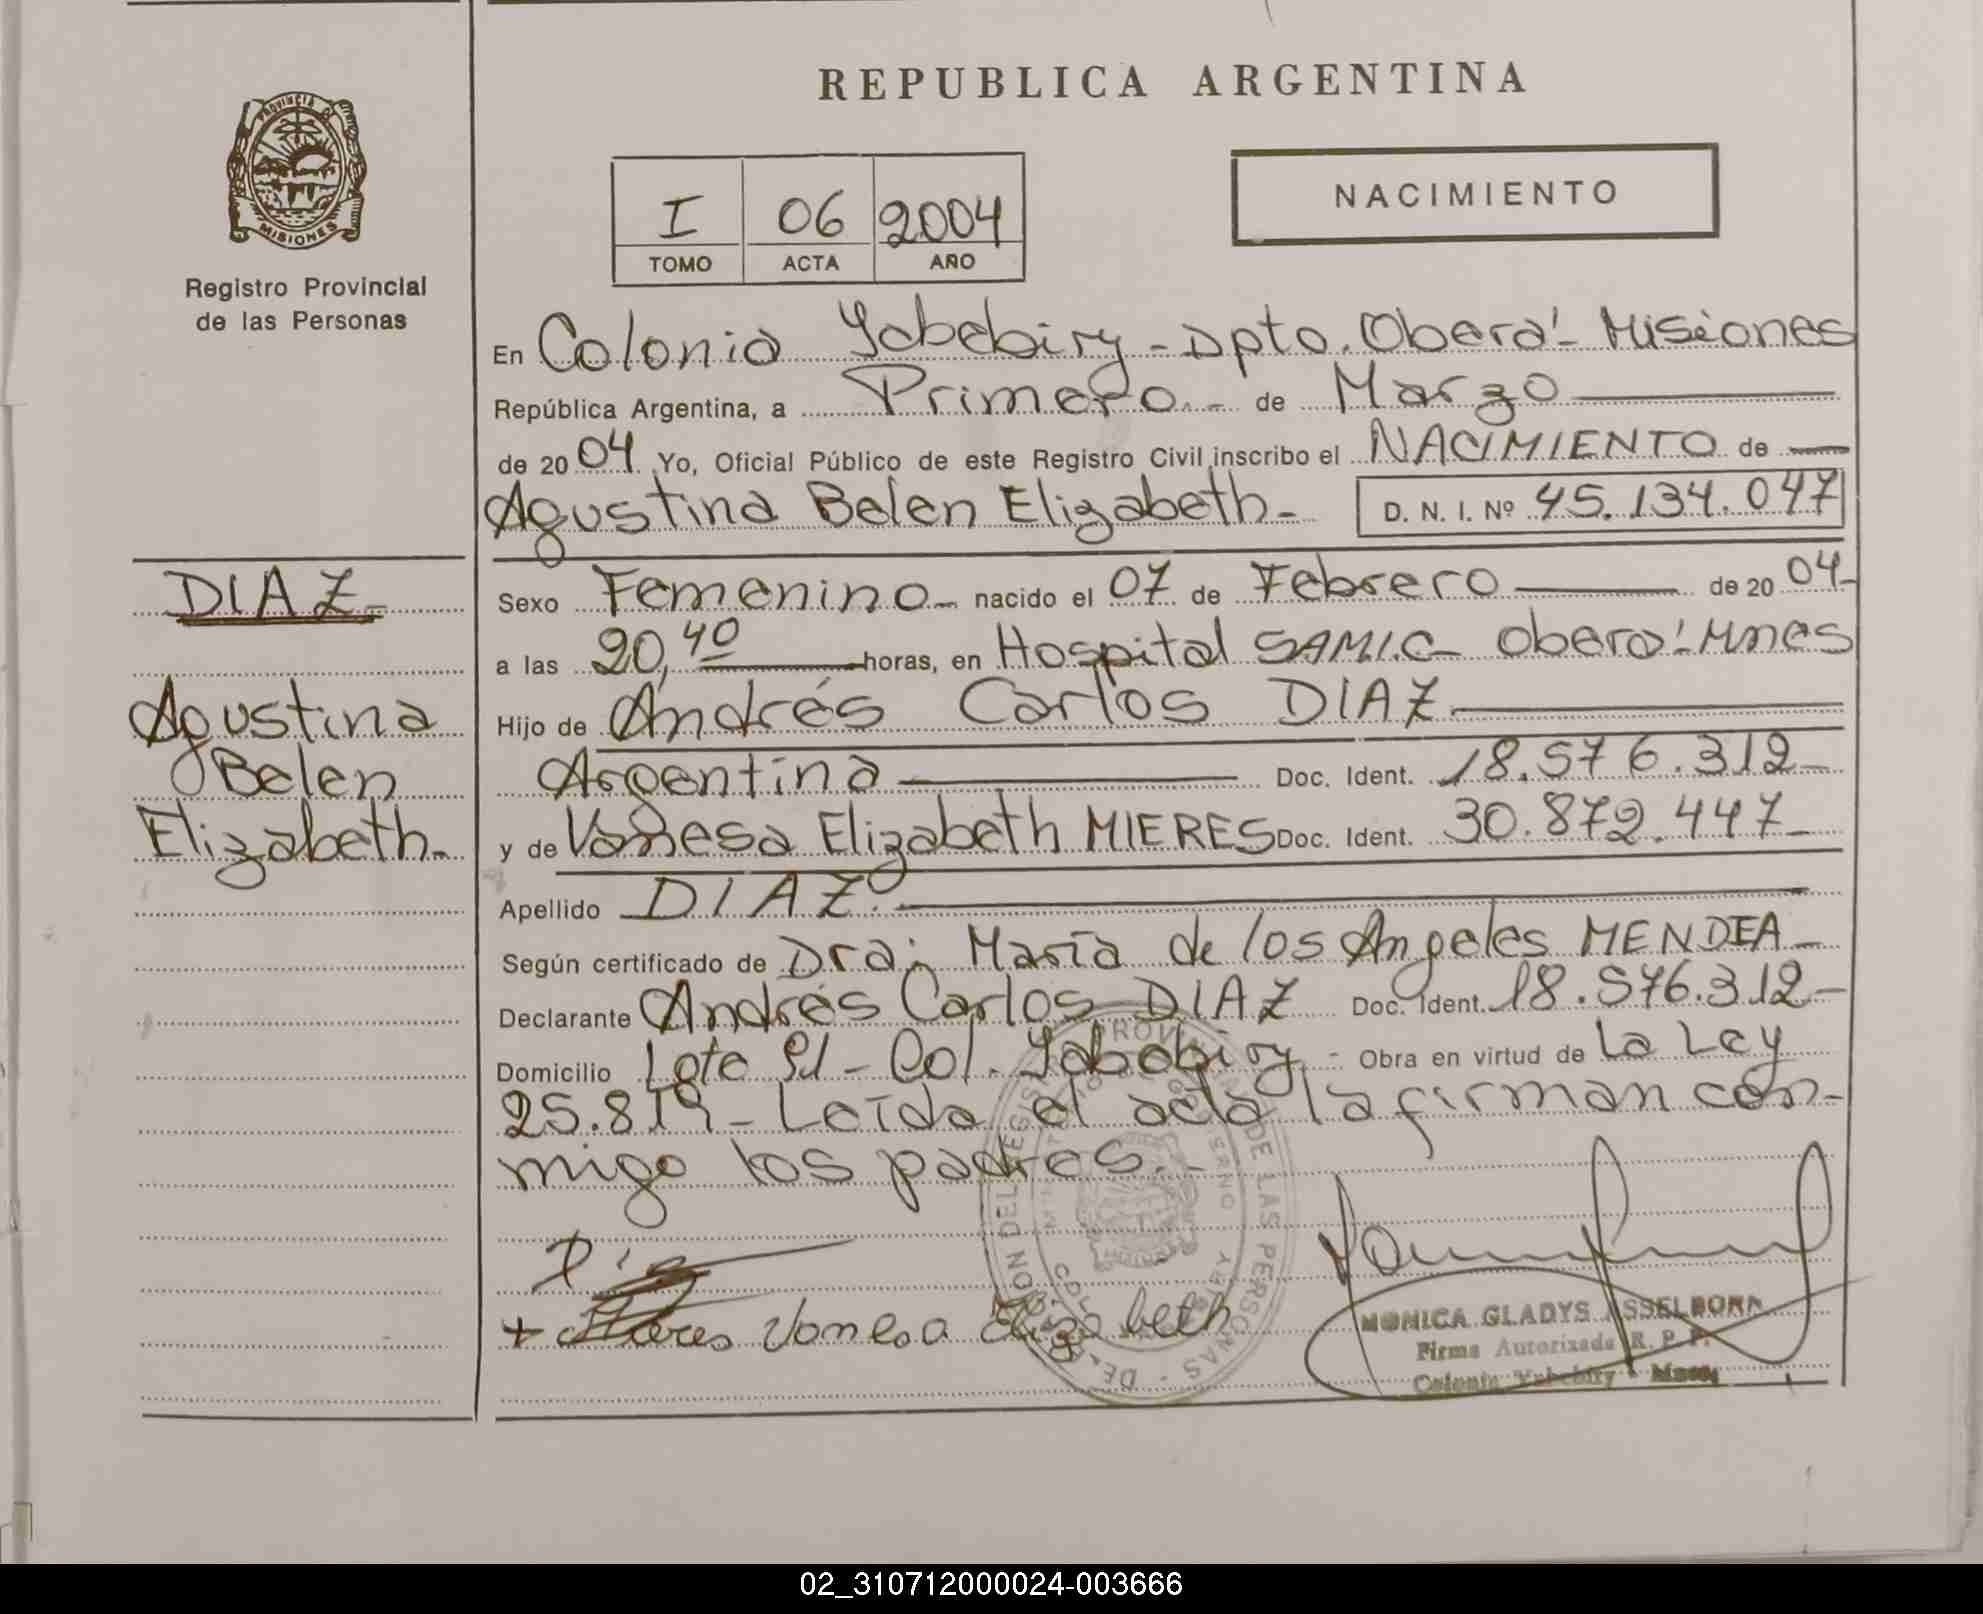 REPUBLICA ARGENTINA
PROVINCIA DE
MISIONES
Registro Provincial
de las Personas
I 06 2004
TOMO ACTA AÑO
NACIMIENTO
En Colonia Yabebiry - Dpto. Oberá - Misiones
República Argentina, a Primero.- de Marzo
de 2004. Yo, Oficial Público de este Registro Civil inscribo el NACIMIENTO de
Agustina Belen Elizabeth- D. N. I. Nº 45.134.047
DIAZ-
Agustina
Belen
Elizabeth-
Sexo Femenino- nacido el 07 de Febrero de 2004-
a las 20,40 horas, en Hospital SAMIC- Oberá-Mnes
Hijo de Andrés Carlos DIAZ
Argentina Doc. Ident. 18.576.312-
y de Vanesa Elizabeth MIERES Doc. Ident. 30.872.447-
Apellido DIAZ.
Según certificado de Dra: María de los Angeles MENDIA-
Declarante Andrés Carlos DIAZ Doc. Ident. 18.576.312-
Domicilio Lote 81- Col. Yabebiry.- Obra en virtud de La Ley
25.819- Leída el acta la firman con-
migo los padres.-
Mieres Vanesa Elizabeth
MONICA GLADYS ASSELBORN
Firma Autorizada R. P. P.
Colonia Yabebiry - Mnes.
02_310712000024-003666